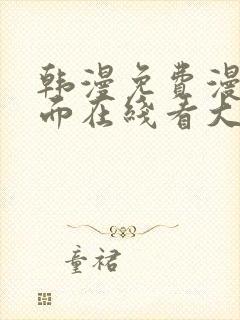 韩漫免费漫
而在线看大
童裙